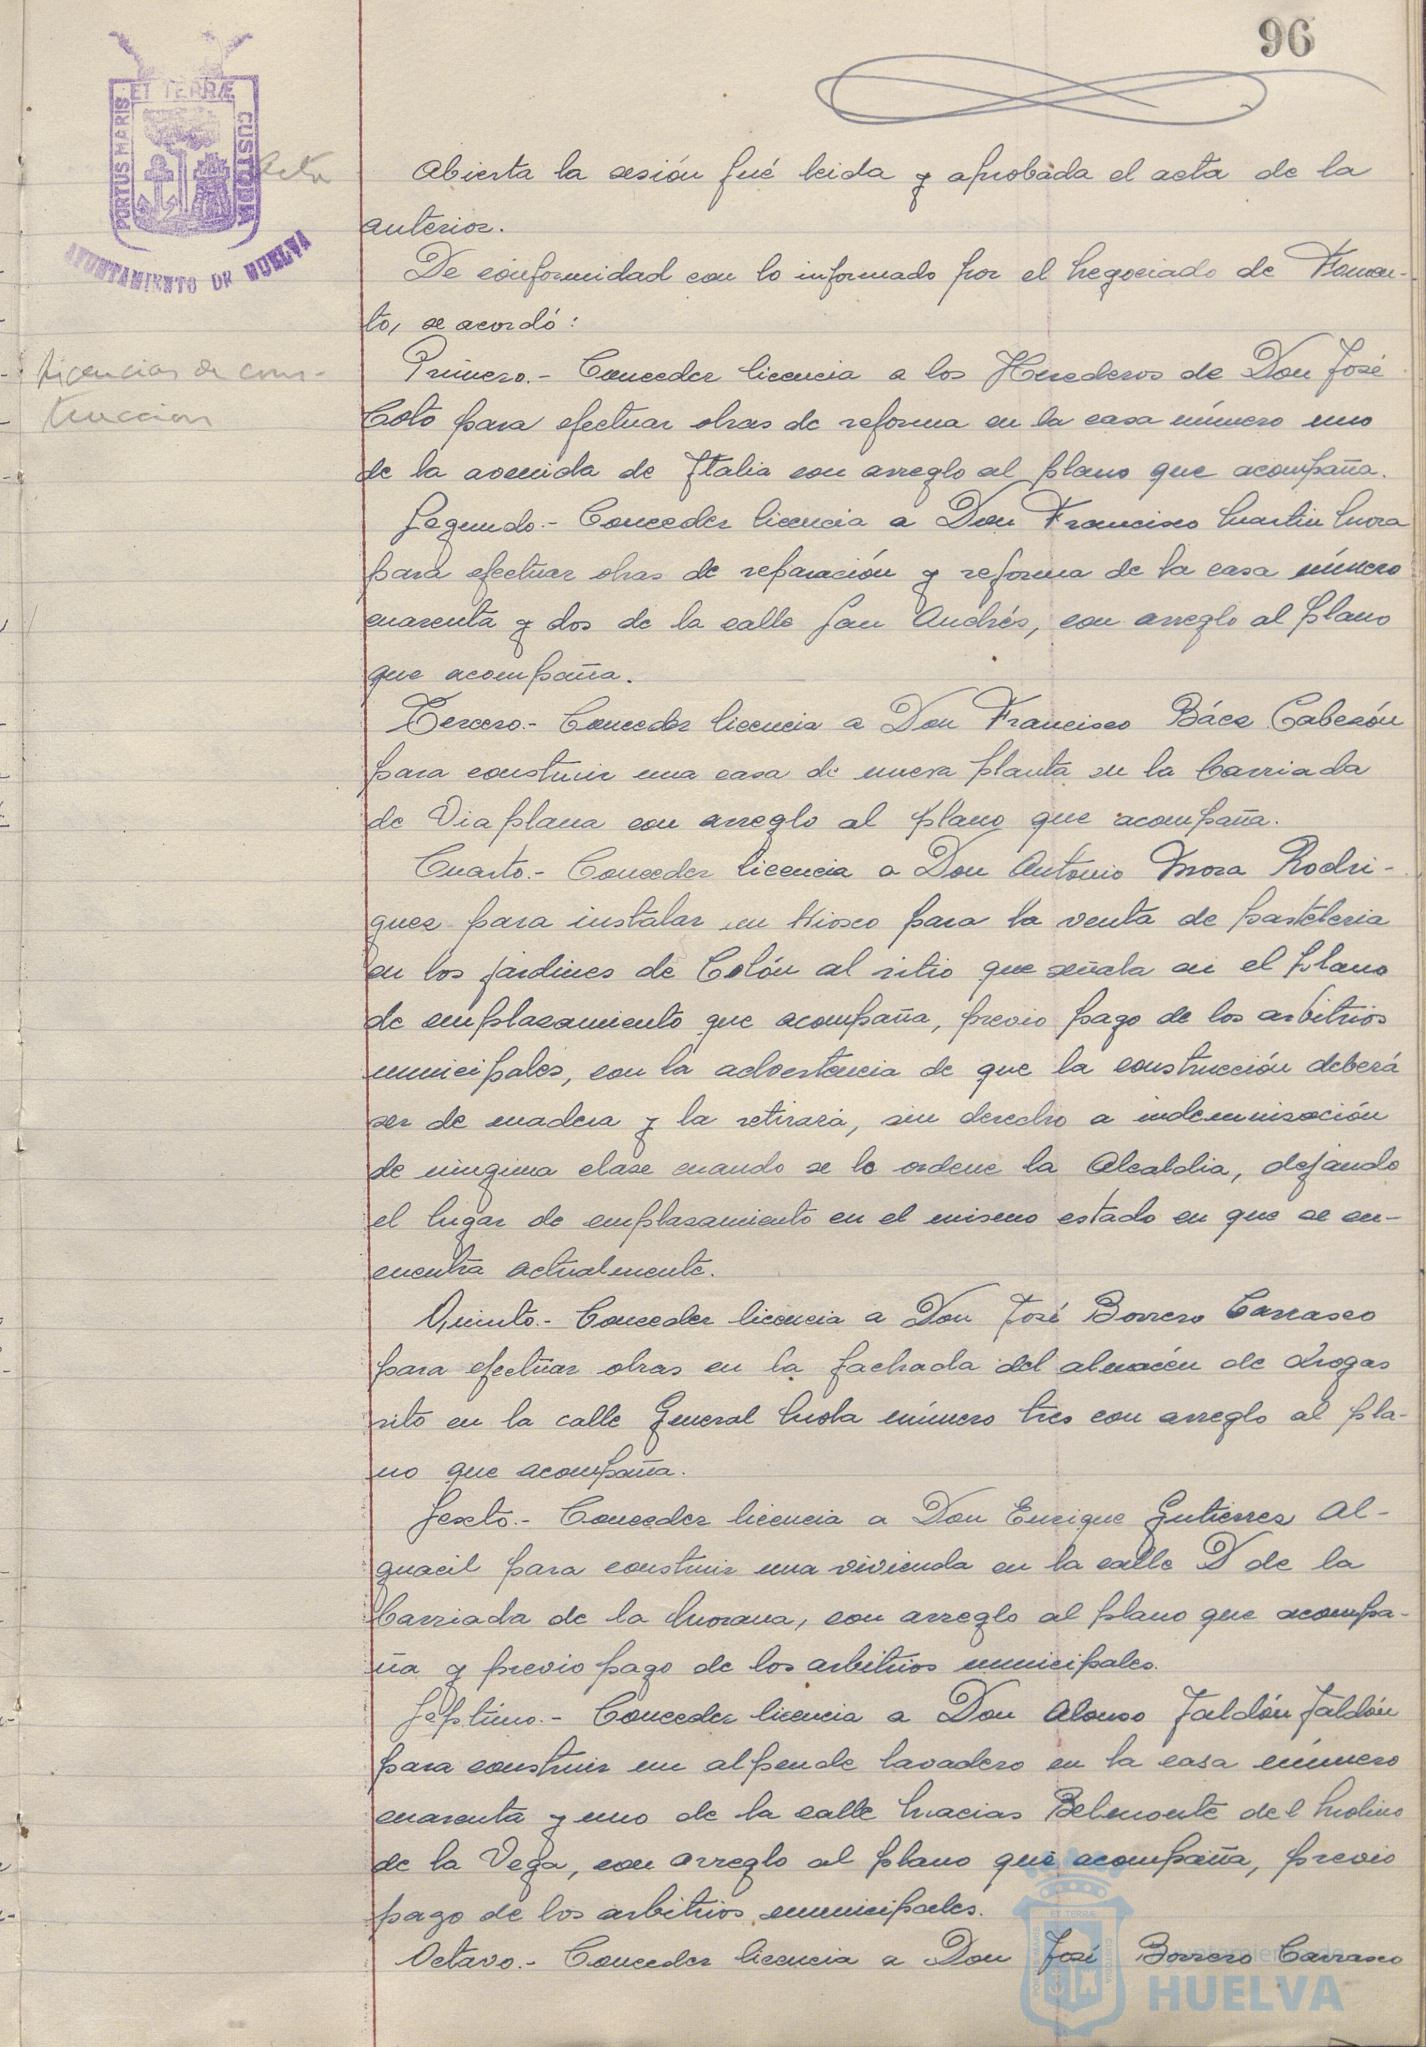 96
PORTUS MARIS ET TERRÆ CUSTODIA
AYUNTAMIENTO DE HUELVA
Acta
Abierta la sesión fué leida y aprobada el acta de la
anterior.
De conformidad con lo informado por el Negociado de Fomen-
to, se acordó:
Licencias de cons-
truccion
Primero.- Conceder licencia a los Herederos de Don José
Coto para efectuar obras de reforma en la casa número uno
de la avenida de Italia con arreglo al plano que acompaña.
Segundo.- Conceder licencia a Don Francisco Martin Mora
para efectuar obras de reparación y reforma de la casa número
cuarenta y dos de la calle San Andrés, con arreglo al plano
que acompaña.
Tercero.- Conceder licencia a Don Francisco Báez Cabezón
para construir una casa de nueva planta en la barriada
de Viaplana con arreglo al plano que acompaña.
Cuarto.- Conceder licencia a Don Antonio Mora Rodri-
guez para instalar un Kiosco para la venta de pasteleria
en los jardines de Colón al sitio que señala en el plano
de emplazamiento que acompaña, previo pago de los arbitrios
municipales, con la advertencia de que la construcción deberá
ser de madera y la retirará, sin derecho a indemnización
de ninguna clase cuando se lo ordene la Alcaldia, dejando
el lugar de emplazamiento en el mismo estado en que se en-
cuentra actualmente.
Quinto.- Conceder licencia a Don José Borrero Carrasco
para efectuar obras en la fachada del almacén de drogas
sito en la calle General Mola número tres con arreglo al pla-
no que acompaña.
Sexto.- Conceder licencia a Don Enrique Gutierrez Al-
guacil para construir una vivienda en la calle D de la
barriada de la Morana, con arreglo al plano que acompa-
ña y previo pago de los arbitrios municipales.
Séptimo.- Conceder licencia a Don Alonso Jaldón Jaldón
para construir un alpende lavadero en la casa número
cuarenta y uno de la calle Macias Belmonte del Molino
de la Vega, con arreglo al plano que acompaña, previo
pago de los arbitrios municipales.
Octavo.- Conceder licencia a Don José Borrero Carrasco
Ayuntamiento de
HUELVA